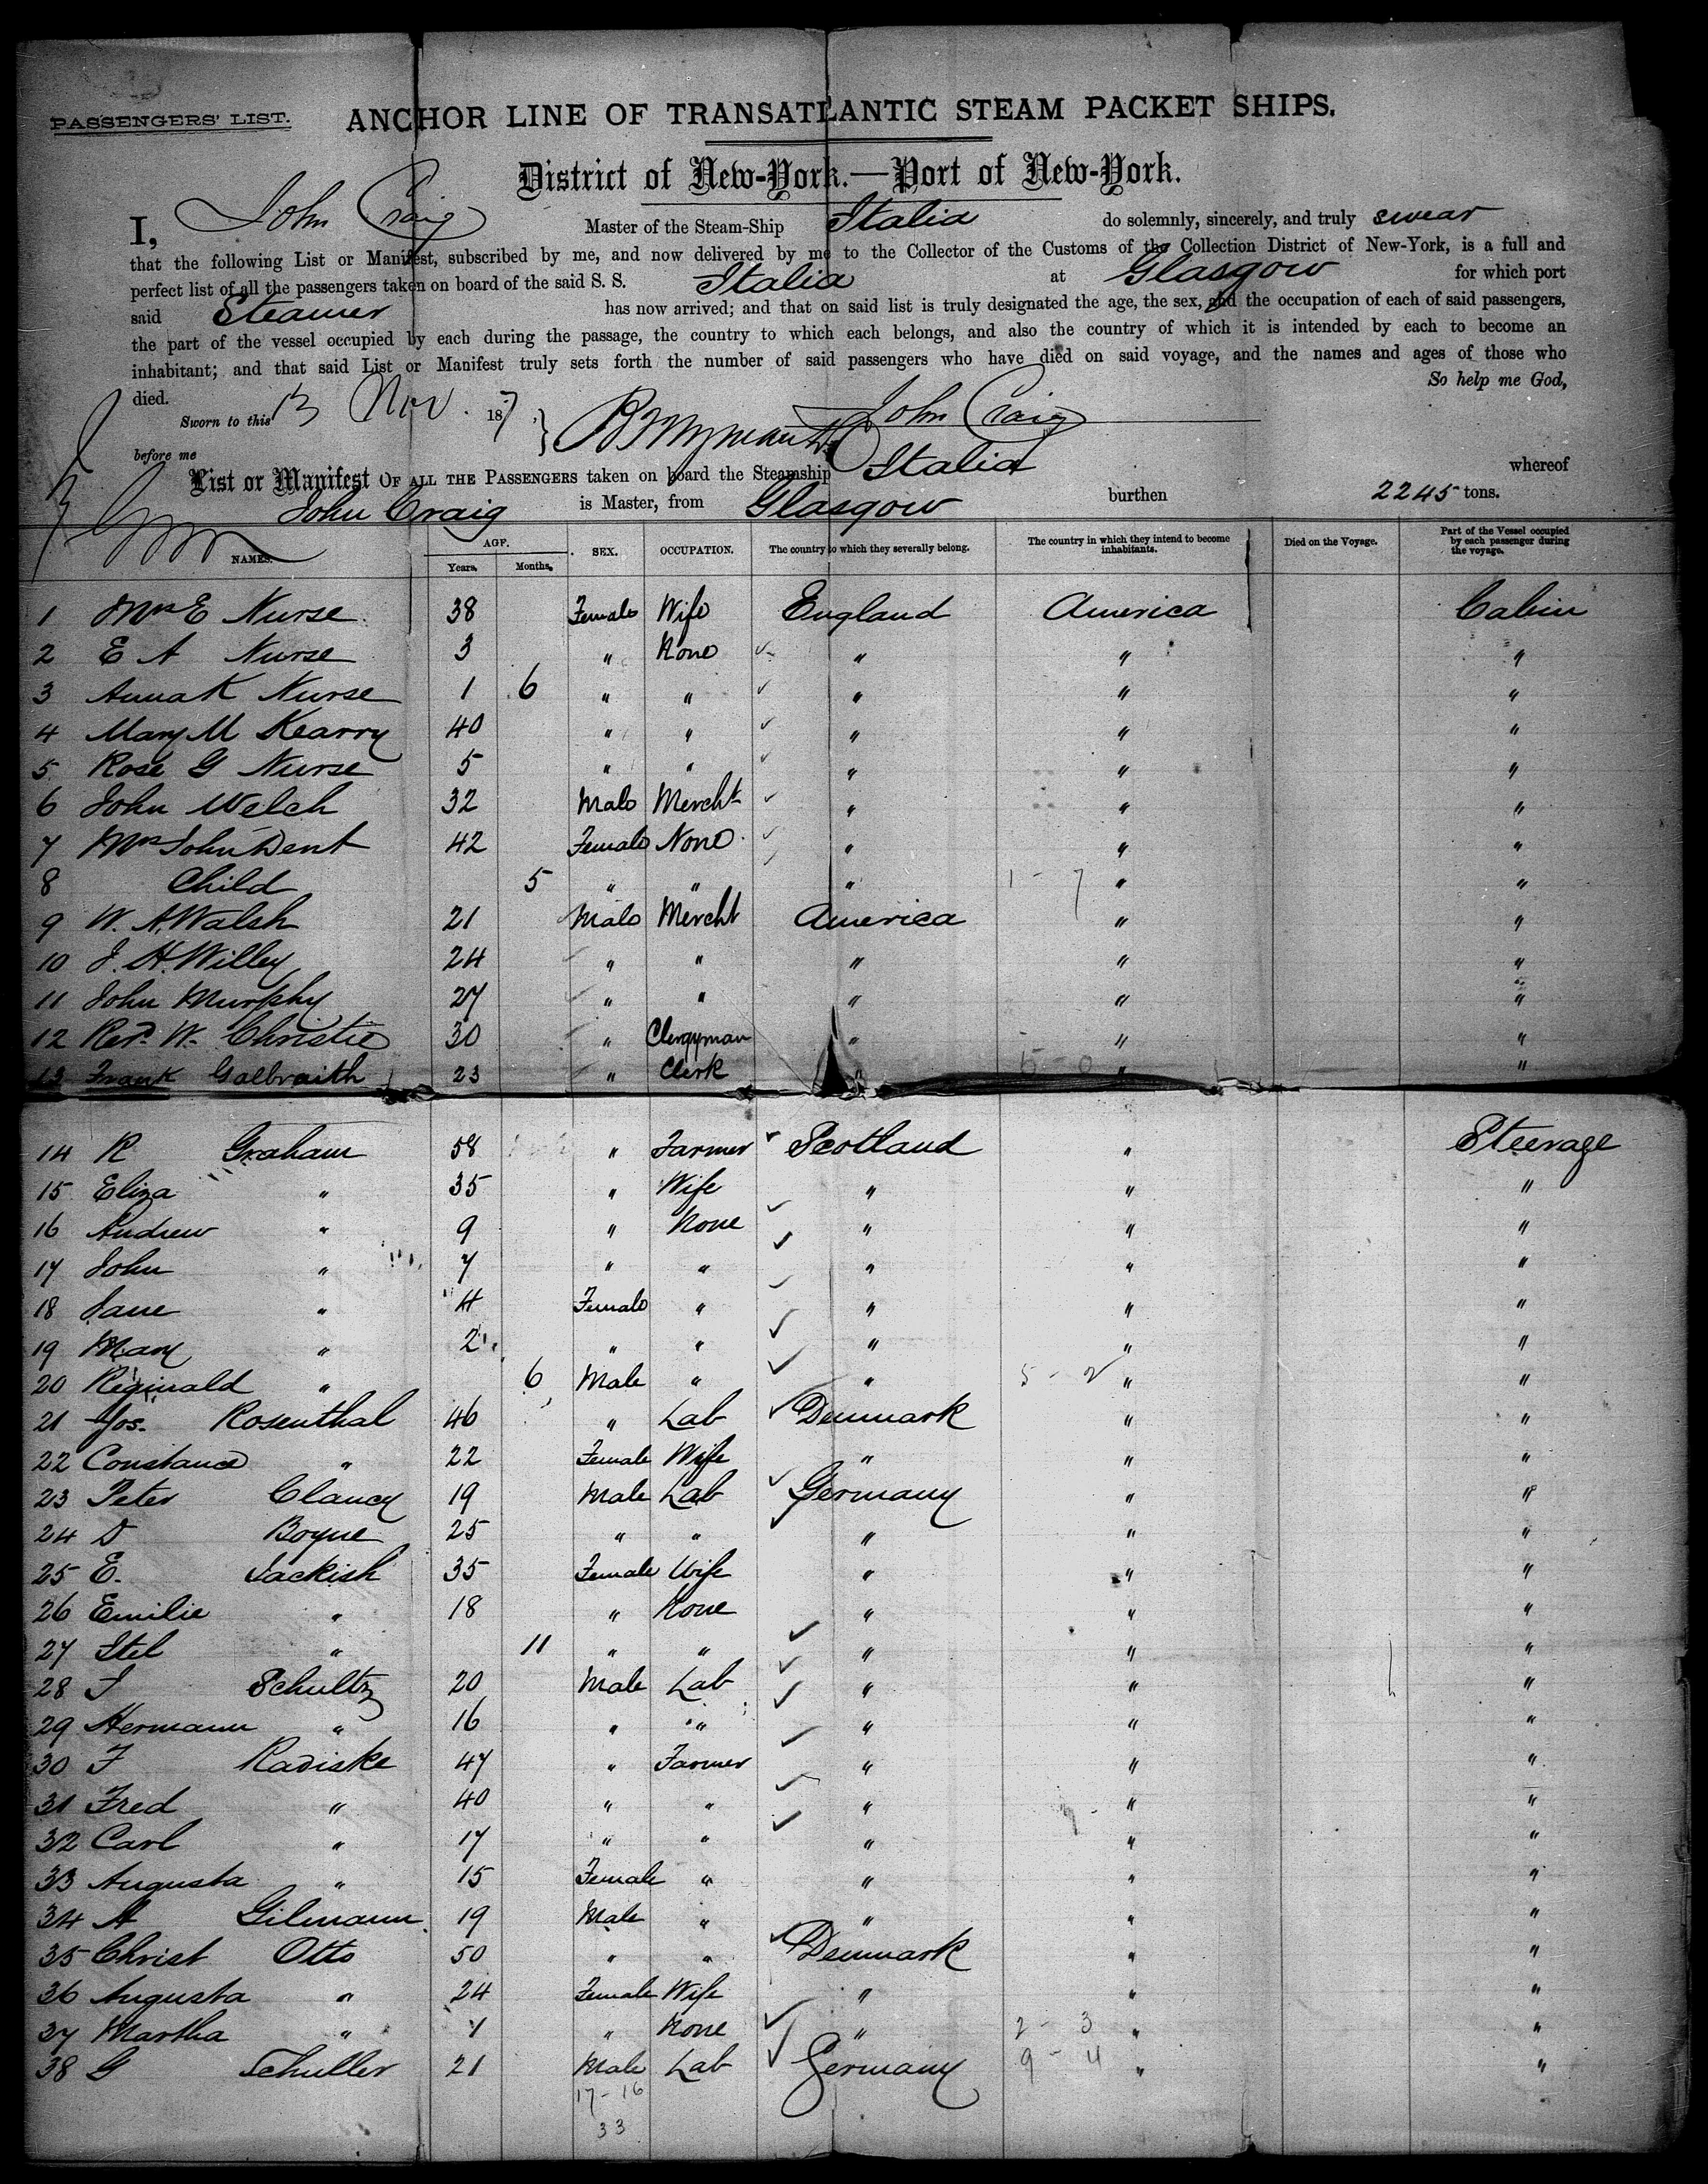 PASSENGERS' LIST.
ANCHOR LINE OF TRANSATLANTIC STEAM PACKET SHIPS.
District of New-York.—Port of New-York.
I, John Craig Master of the Steam-Ship Italia do solemnly, sincerely, and truly swear
that the following List or Manifest, subscribed by me, and now delivered by me to the Collector of the Customs of the Collection District of New-York, is a full and
perfect list of all the passengers taken on board of the said S. S. Italia at Glasgow for which port
said Steamer has now arrived; and that on said list is truly designated the age, the sex, and the occupation of each of said passengers,
the part of the vessel occupied by each during the passage, the country to which each belongs, and also the country of which it is intended by each to become an
inhabitant; and that said List or Manifest truly sets forth the number of said passengers who have died on said voyage, and the names and ages of those who
died. So help me God,
Sworn to this 13 Nov. 187 John Craig
before me
List or Manifest OF ALL THE PASSENGERS taken on board the Steamship Italia whereof
John Craig is Master, from Glasgow burthen 2245 tons.
NAMES. AGE. Years. Months. SEX. OCCUPATION. The country to which they severally belong. The country in which they intend to become inhabitants. Died on the Voyage. Part of the Vessel occupied by each passenger during the voyage.
1 Mrs E Nurse 38 Female Wife England America Cabin
2 E A Nurse 3 " None " " "
3 Anna K Nurse 1 6 " " " " "
4 Mary M Kearry 40 " " " " "
5 Rose G Nurse 5 " " " " "
6 John Welch 32 Male Mercht " " "
7 Mrs John Dent 42 Female None " " "
8 Child 5 " " " 1 - 7 " "
9 W. A. Walsh 21 Male Mercht America " "
10 J. H. Willey 24 " " " " "
11 John Murphy 27 " " " " "
12 Revd. W. Christie 30 " Clergyman " " "
13 Frank Galbraith 23 " Clerk " 5 - 0 " "
14 R Graham 58 " Farmer Scotland " Steerage
15 Eliza " 35 " Wife " " "
16 Andrew " 9 " None " " "
17 John " 7 " " " " "
18 Jane " 4 Female " " " "
19 Mary " 2 " " " " "
20 Reginald " 6 Male " " 5 - 2 " "
21 Jos. Rosenthal 46 " Lab Denmark " "
22 Constance " 22 Female Wife " " "
23 Peter Clancy 19 Male Lab Germany " "
24 D Boyne 25 " " " " "
25 E. Jackish 35 Female Wife " " "
26 Emilie " 18 " None " " "
27 Itel " 11 " " " " "
28 J Schultz 20 Male Lab " " "
29 Hermann " 16 " " " " "
30 F Radiske 47 " Farmer " " "
31 Fred " 40 " " " " "
32 Carl " 17 " " " " "
33 Augusta " 15 Female " " " "
34 A Gilmann 19 Male " " " "
35 Christ Otto 50 " " Denmark " "
36 Augusta " 24 Female Wife " " "
37 Martha " " None " 2 - 3 " "
38 G Schuller 21 Male Lab Germany 9 - 4 " "
17 - 16
33